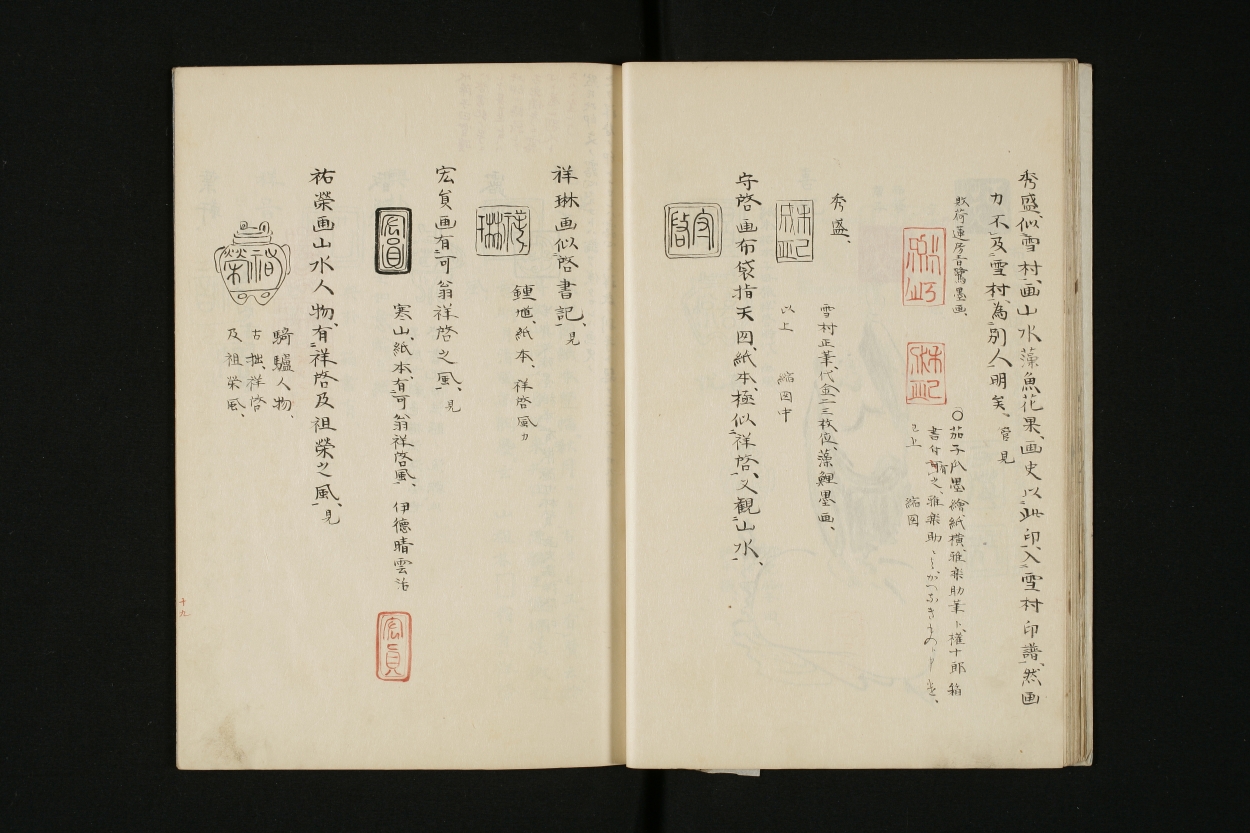 秀盛似雪村画山水藻魚花果、画史以此印、入雪村印譜、然画
力不及雪村、為別人明矣、管見
敗荷蓮房
墨画、
○茄子瓜墨繪紙横、雅楽助筆ト権十郎箱
書付有之、雅楽助
已上
縮図
秀盛、
雪村正筆、代金二三枚位、藻鯉墨画、
以上
縮図中
守啓画布袋指天図、紙本、極似祥啓、又観山水、
守啓
祥琳画似啓書記、見
祥琳
鍾馗、紙本、祥啓風カ
宏貟画有可翁祥啓之風、見
宏員
寒山、紙本、有可翁祥啓風、伊德晴雲治
宏貟
祐榮画山水人物、有祥啓及祖榮之風、見
祐榮
騎驢人物、
古拙、祥啓
及祖榮風、
十九